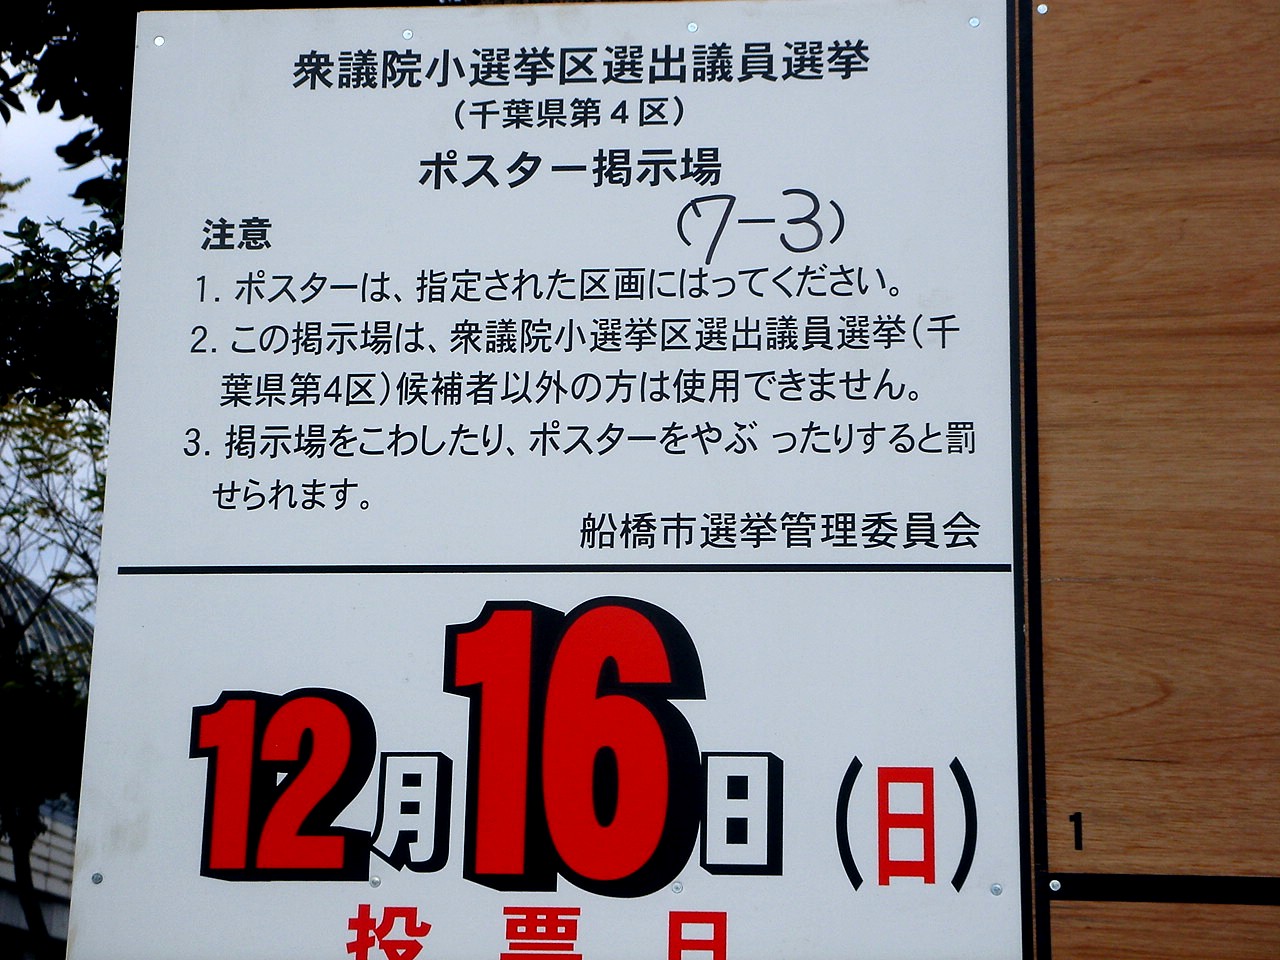 衆議院小選挙区選出議員選挙
(千葉県第4区)
ポスター掲示場
(7-3)
注意
1. ポスターは、指定された区画にはってください。
2. この掲示場は、衆議院小選挙区選出議員選挙(千
葉県第4区)候補者以外の方は使用できません。
3. 掲示場をこわしたり、ポスターをやぶ ったりすると罰
せられます。
船橋市選挙管理委員会
12月16日(日)
投票日
1